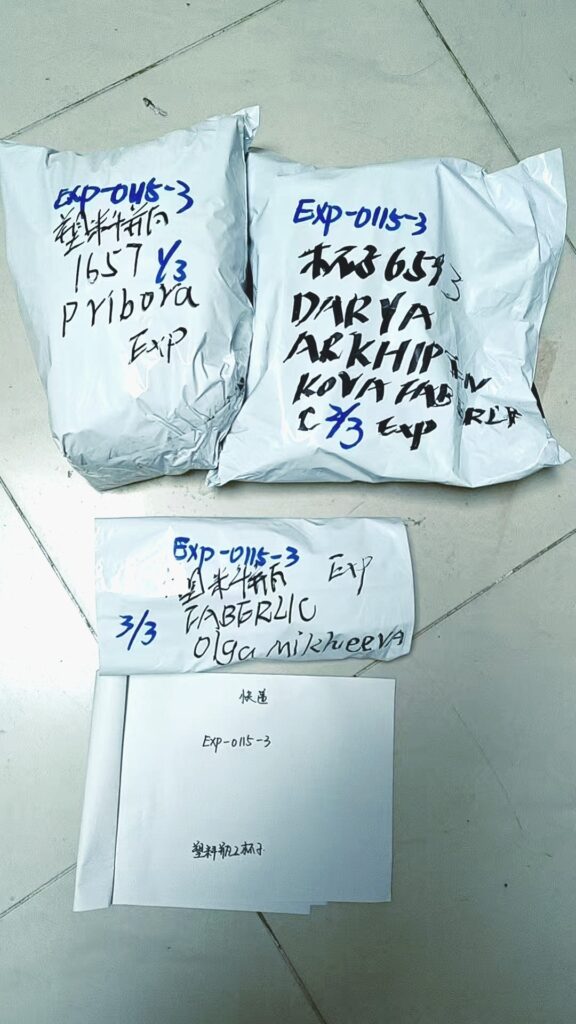 Exp-0115-3
塑料瓶
1657 1/3
pribora
Exp
Exp-0115-3
杯子6593
DARYA
ARKHIPEN
KOVA FABERLI
C 2/3 Exp
Exp-0115-3
塑料瓶 Exp
3/3 FABERLIC
Olga MIKHEEVA
快递
Exp-0115-3
塑料瓶2杯子